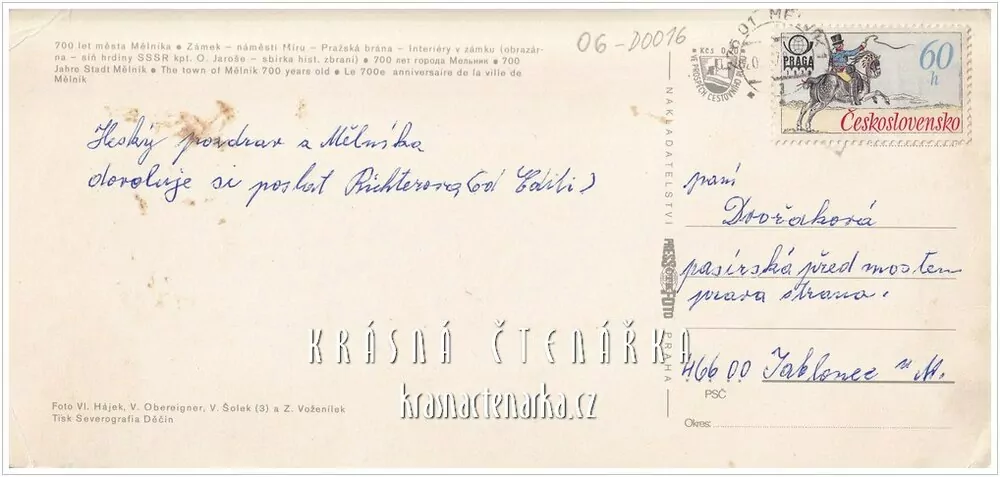 700 let města Mělníka ● Zámek – náměstí Míru – Pražská brána – Interiéry v zámku (obrazár-
na – síň hrdiny SSSR kpt. O. Jaroše – sbírka hist. zbraní) ● 700 лет города Мельник ● 700
Jahre Stadt Mělník ● The town of Mělník 700 years old ● Le 700e anniversaire de la ville de
Mělník
06-D0016
Kčs
VE PROSPĚCH CESTOVNÍHO
PRAGA
60
h
Československo
Hezký pozdrav z Mělníka
dovoluje si poslat Richterova, (od Editi)
NAKLADATELSTVÍ
PRESSFOTO
PRAHA
paní
Dvořáková
pasířská před mostem
prava strana.
46600 Jablonec n N.
PSČ
Okres:
KRÁSNÁ ČTENÁŘKA
krasnactenarka.cz
Foto Vl. Hájek, V. Obereigner, V. Šolek (3) a Z. Voženílek
Tisk Severografia Děčín